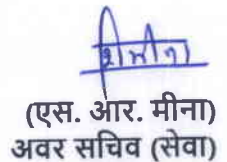 (एस. आर. मीना)
अवर सचिव (सेवा)